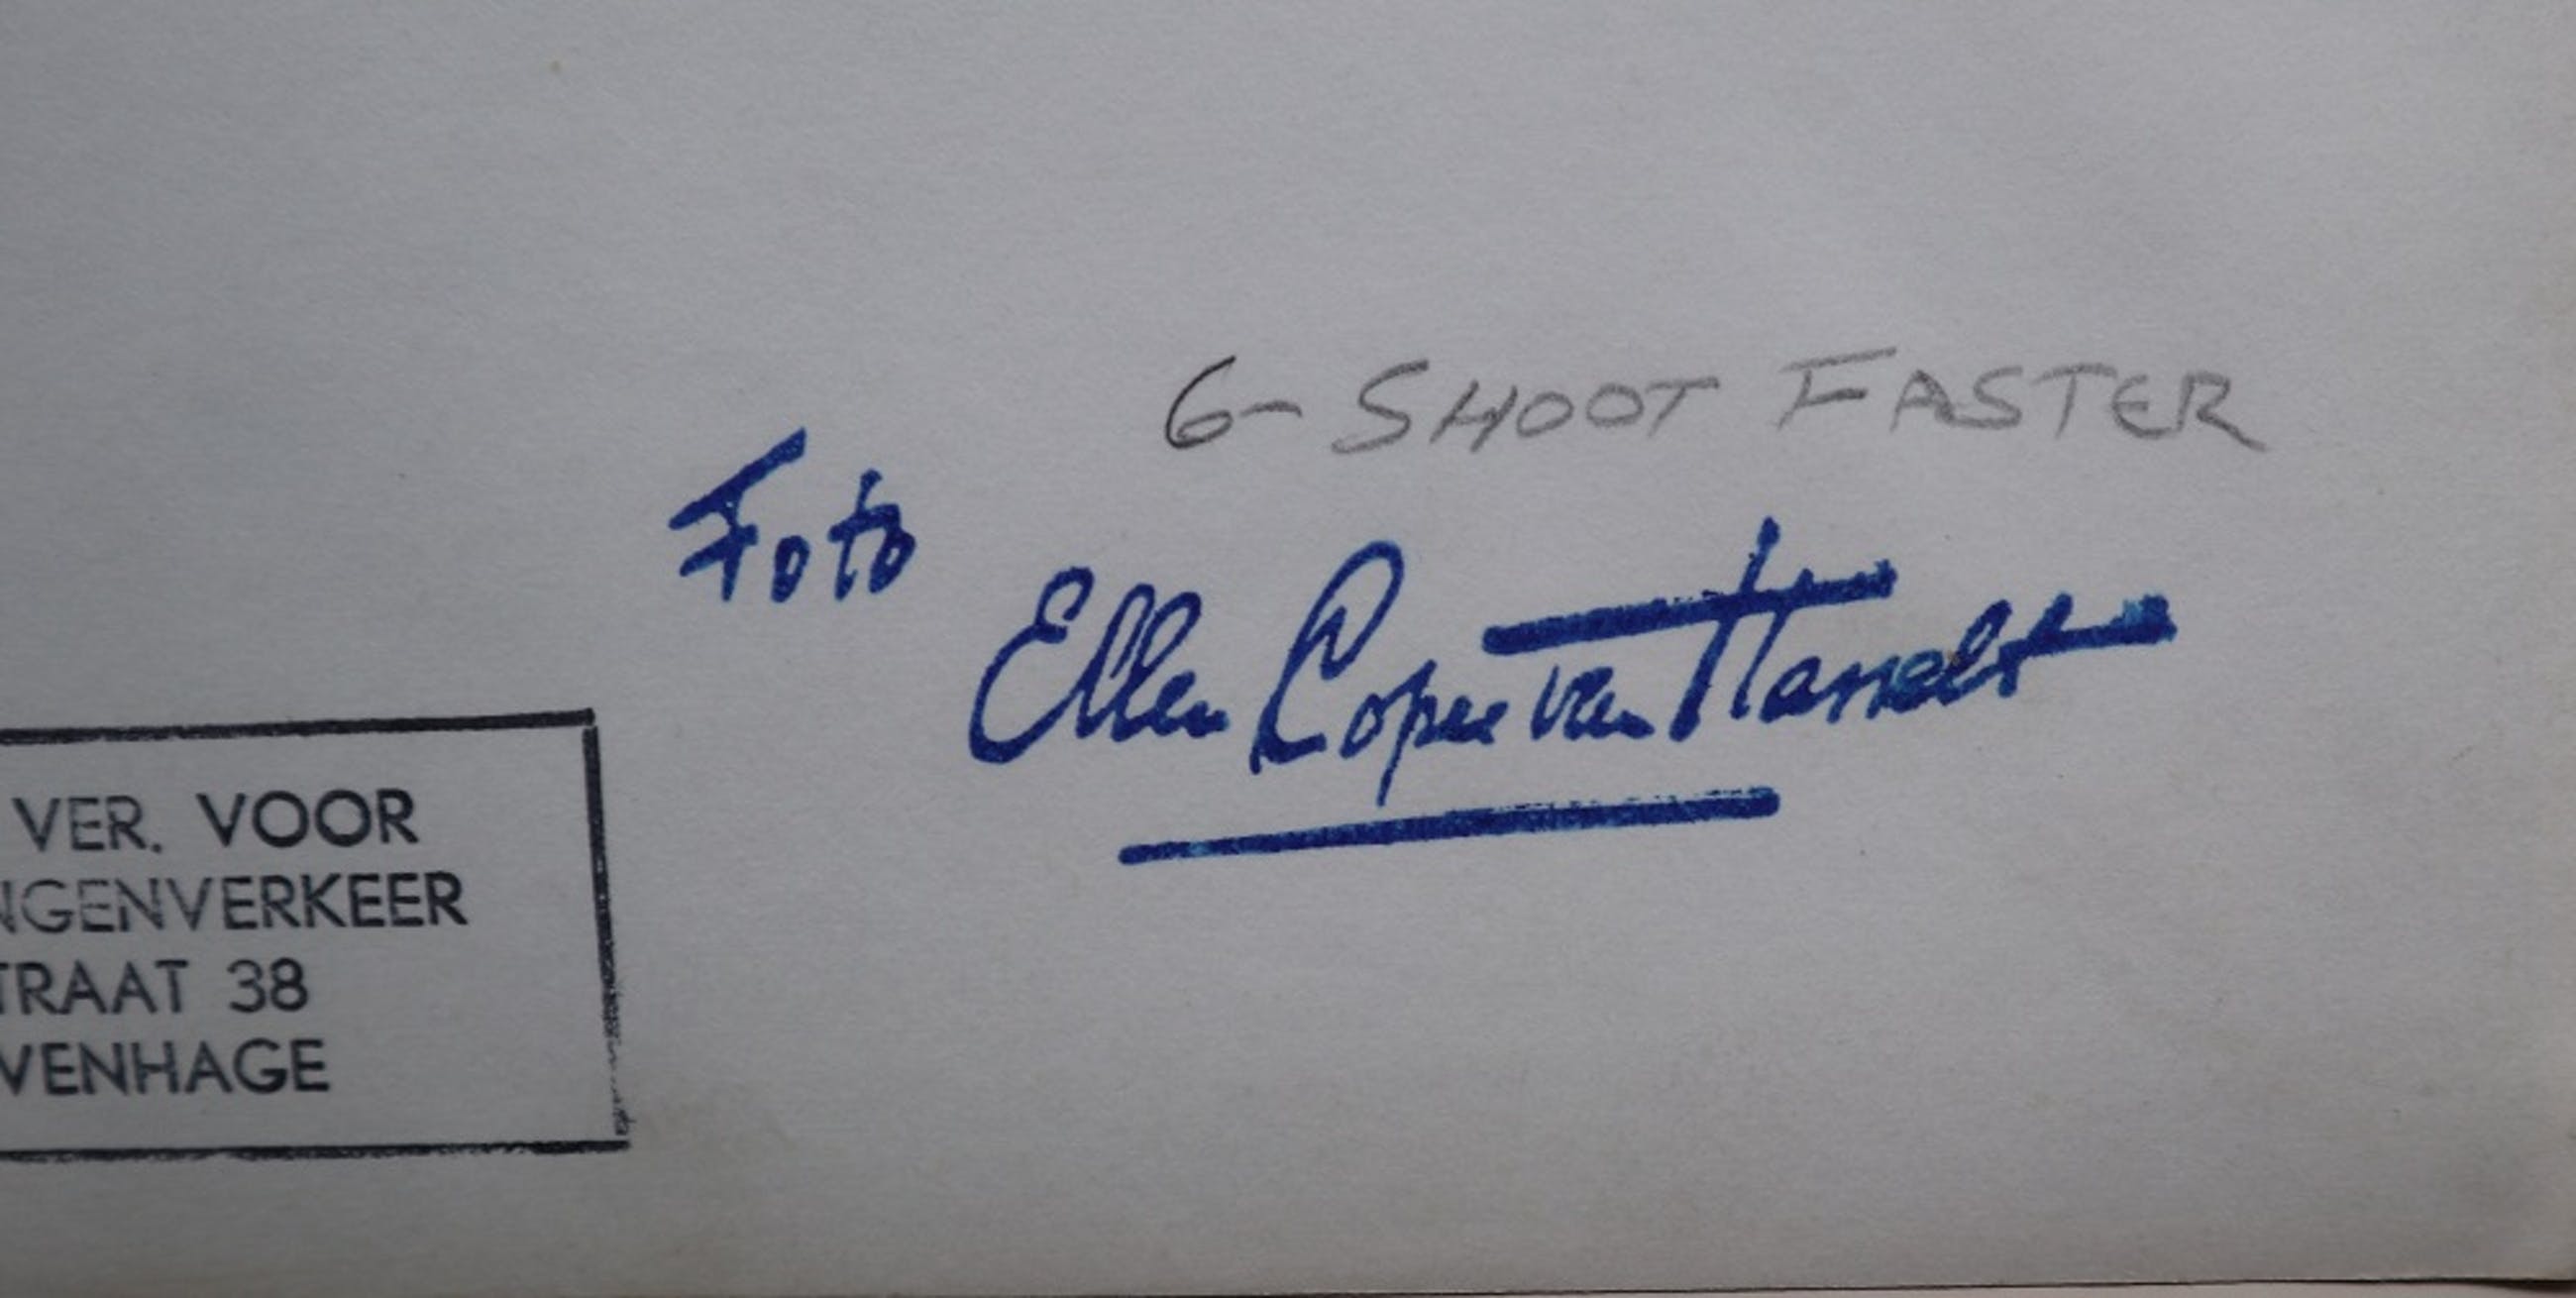 6- SHOOT FASTER
Foto
Ellen Copee van Hasselt
VER. VOOR
NGENVERKEER
TRAAT 38
VENHAGE